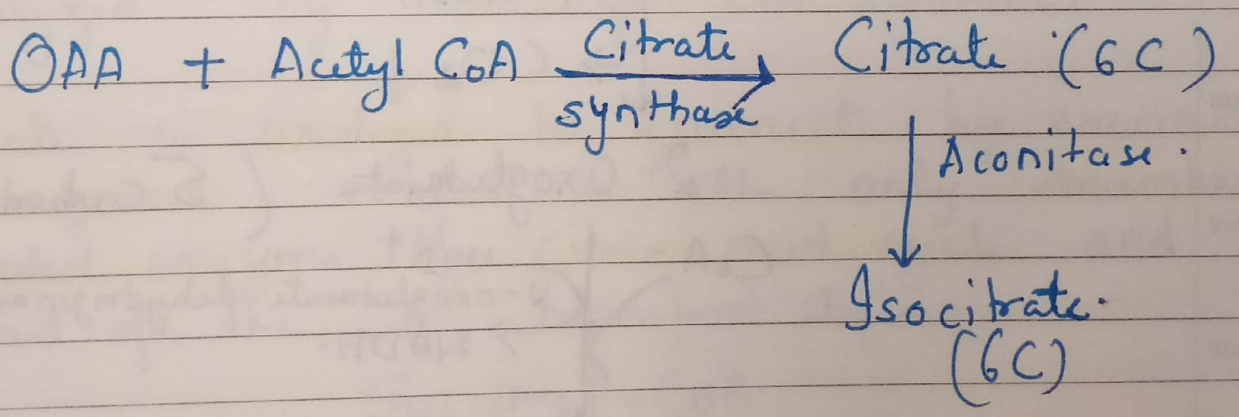 OAA + Acetyl CoA Citrate synthase Citrate (6C)
Aconitase.
Isocitrate.
(6C)